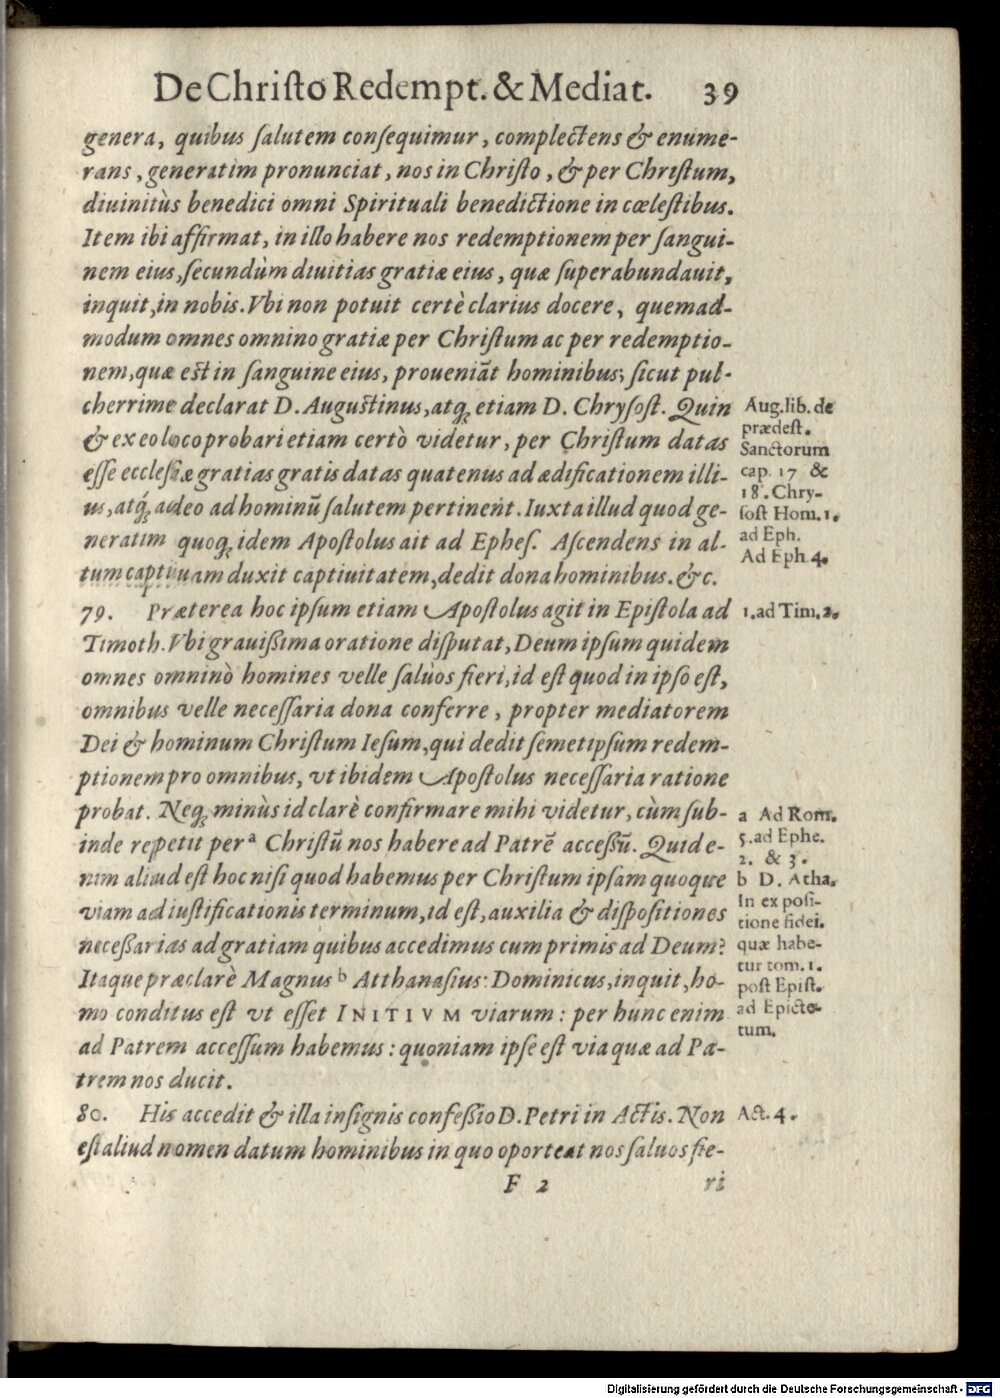 De Chriſto Redempt. & Mediat. 39
genera, quibus ſalutem conſequimur, complectens & enume-
rans, generatim pronunciat, nos in Chriſto, & per Chriſtum,
diuinitùs benedici omni Spirituali benedictione in cœleſtibus.
Item ibi affirmat, in illo habere nos redemptionem per ſangui-
nem eius, ſecundùm diuitias gratiæ eius, quæ ſuperabundauit,
inquit, in nobis. Vbi non potuit certè clarius docere, quemad-
modum omnes omnino gratiæ per Chriſtum ac per redemptio-
nem, quæ eſt in ſanguine eius, proueniãt hominibus; ſicut pul-
cherrime declarat D. Auguſtinus, atq; etiam D. Chryſoſt. Quin
& ex eo loco probari etiam certò videtur, per Chriſtum datas
eſſe eccleſiæ gratias gratis datas quatenus ad ædificationem illi-
us, atq́; adeo ad hominũ ſalutem pertinent. Iuxta illud quod ge-
neratim quoq; idem Apoſtolus ait ad Epheſ. Aſcendens in al-
tum captiuam duxit captiuitatem, dedit dona hominibus. &c.
Aug. lib. de
prædeſt.
Sanctorum
cap. 17 &
18. Chry-
ſoſt Hom. 1.
ad Eph.
Ad Eph 4.
79. Præterea hoc ipſum etiam Apoſtolus agit in Epiſtola ad
Timoth. Vbi grauißima oratione diſputat, Deum ipſum quidem
omnes omninò homines velle ſaluos fieri, id eſt quod in ipſo eſt,
omnibus velle neceſſaria dona conferre, propter mediatorem
Dei & hominum Chriſtum Ieſum, qui dedit ſemetipſum redem-
ptionem pro omnibus, vt ibidem Apoſtolus neceſſaria ratione
probat. Neq; minùs id clarè confirmare mihi videtur, cùm ſub-
inde repetit per a Chriſtũ nos habere ad Patrẽ acceßũ. Quid e-
nim aliud eſt hoc niſi quod habemus per Chriſtum ipſam quoque
viam ad iuſtificationis terminum, id eſt, auxilia & diſpoſitiones
neceßarias ad gratiam quibus accedimus cum primis ad Deum?
Itaque præclarè Magnus b Atthanaſius: Dominicus, inquit, ho-
mo conditus eſt vt eſſet INITIVM viarum: per hunc enim
ad Patrem acceſſum habemus: quoniam ipſe eſt via quæ ad Pa-
trem nos ducit.
1. ad Tim. 2.
a Ad Rom.
5. ad Ephe.
2. & 3.
b D. Atha.
In expoſi-
tione fidei.
quæ habe-
tur tom. 1.
poſt Epiſt.
ad Epicte-
tum.
80. His accedit & illa inſignis confeßio D. Petri in Actis. Non
eſt aliud nomen datum hominibus in quo oporteat nos ſaluos fie-
Act. 4.
F 2 ri
Digitalisierung gefördert durch die Deutsche Forschungsgemeinschaft - DFG